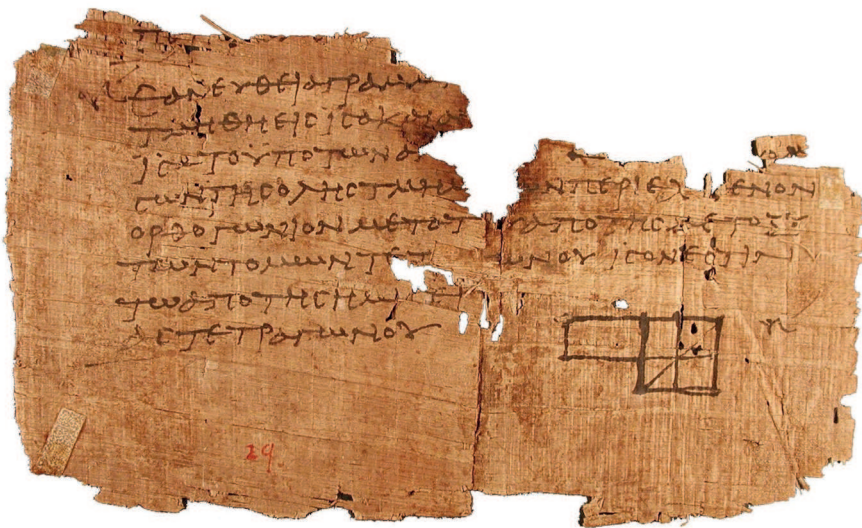 ΕΑΝΕΥΘΕΙΑΓΡΑΜ
ΤΜΗΘΗΕΙϹΙϹΑΚΑΙΑ
ΙϹΑΤΟΥΠΟΤΩΝΑ
ϹΩΝΤΗϹΟΛΗϹΤΜΗΜ ΩΝΠΕΡΙΕΧ ΕΝΟΝ
ΟΡΘΟΓΩΝΙΟΝΜΕΤΑΤ ΑΠΟΤΗϹΜΕΤΟΞΥ
ΤΩΝΤΟΜΩΝΤΕΤ ΩΝΟΥΙϹΟΝΕϹΤΙΝ
ΤΩΑΠΟΤΗϹΗΜΙϹΕΙ
ΑϹΤΕΤΡΑΓΩΝΟΥ
29